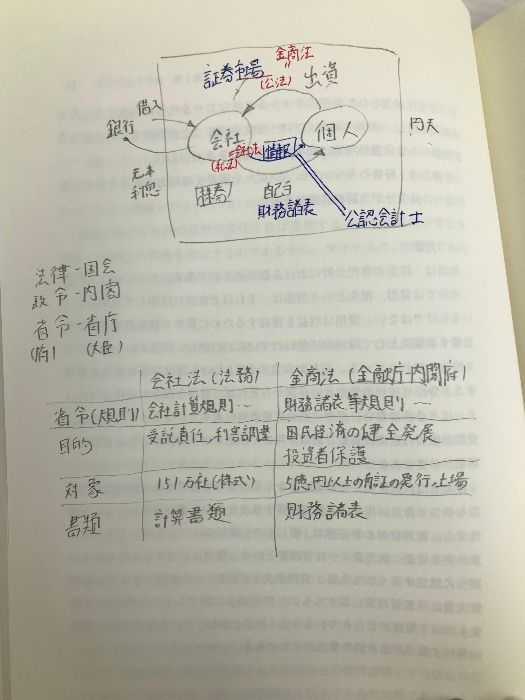 金商法
証券市場 = 出資
(公法)
借入
銀行 会社 個人 円天
(私法) 会社法 情報
元本
利息 株券 配当
財務諸表 公認会計士
法律-国会
政令-内閣
省令-省庁
(府) (大臣)
会社法(法務) 金商法(金融庁-内閣府)
省令(規則) 会社計算規則… 財務諸表等規則
目的 受託責任,利害調整 国民経済の健全発展
投資者保護
対象 151万社(株式) 5億円以上の有証の発行,上場
書類 計算書類 財務諸表